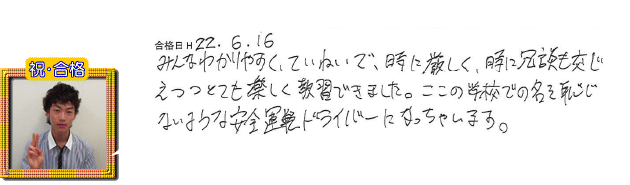 祝・合格
合格日 H 22.6.16
みんなわかりやすく、ていねいで、時に厳しく、時に冗談も交じ
えつつとても楽しく教習できました。ここの学校での名を恥じ
ないような安全運転ドライバーになっちゃいます。